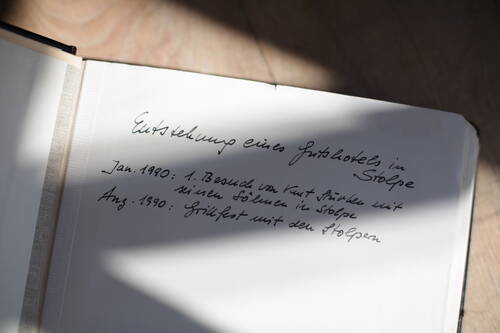 Entstehung eines Gutshotels in
Stolpe
Jan. 1990: 1. Besuch von Kurt Stürken mit
seinen Söhnen in Stolpe
Aug. 1990: Grillfest mit den Stolpern